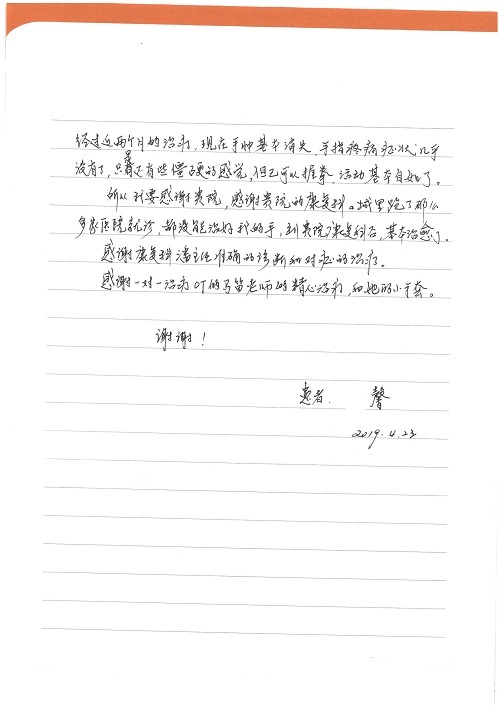 经过近两个月的治疗，现在手肿基本消失，手指疼痛症状几乎
没有了，只是还有些僵硬的感觉，但已可以握拳，活动基本自如了。
所以我要感谢贵院，感谢贵院的康复科。城里跑了那么
多家医院就诊，都没能治好我的手，到贵院康复科后，基本治愈了。
感谢康复科潘主任准确的诊断和对症的治疗。
感谢一对一治疗OT的马笛老师的精心治疗，和她的小手套。
谢谢！
患者. 馨
2019.4.23